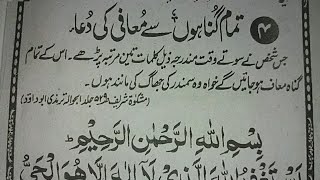 ۴ تمام گناہوں سے معافی کی دُعا۔
جس شخص نے سوتے وقت مندرجہ ذیل کلمات تین مرتبہ پڑھے۔ اس کے تمام
گناہ معاف ہوجائیں گے خواہ وہ سمندر کی جھاگ کی مانند ہوں۔
(مشکوٰۃ شریف جلد بحوالہ ترمذی ابوداؤد)
بِسْمِ اللّٰهِ الرَّحْمٰنِ الرَّحِيْمِ
اَسْتَغْفِرُ اللّٰهَ الَّذِيْ لَآ اِلٰهَ اِلَّا هُوَ الْحَيُّ